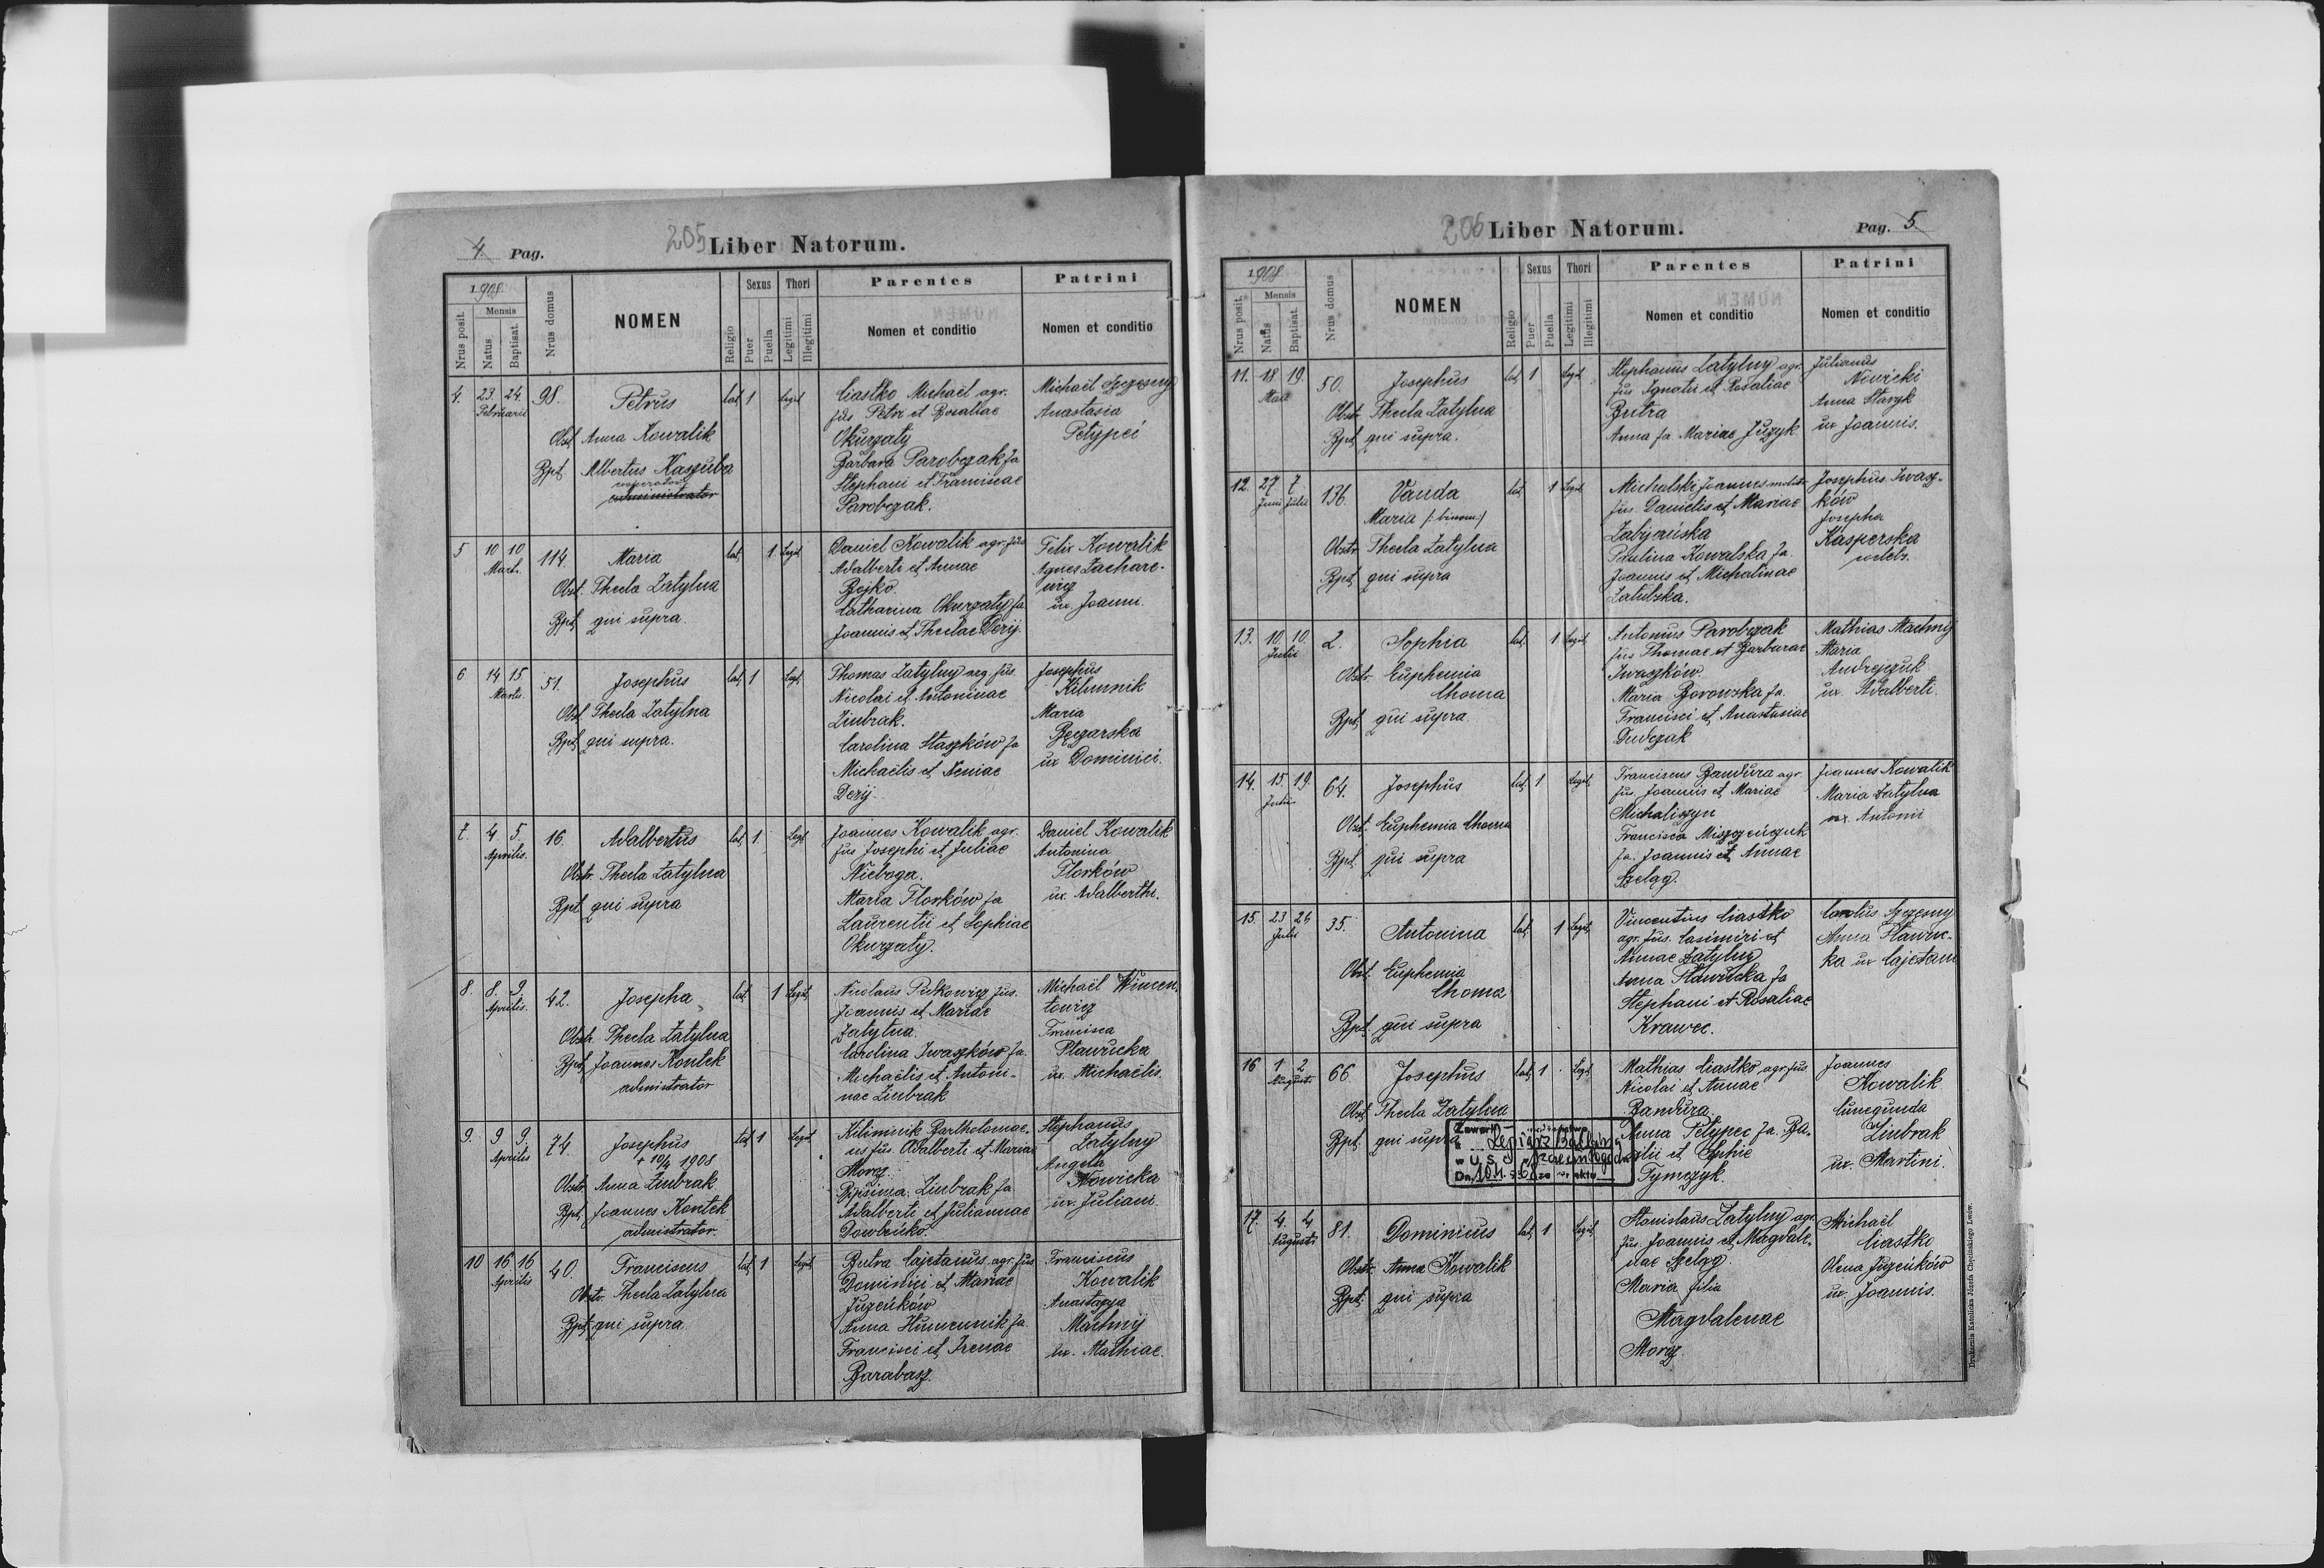 4 Pag.
205
Liber Natorum.
1908
Nrus posit.
Mensis
Natus
Baptisat.
Nrus domus
NOMEN
Religio
Sexus
Puer
Puella
Thori
Legitimi
Illegitimi
Parentes
Nomen et conditio
Patrini
Nomen et conditio
4. 23. 24. Februarii 98.
Petrus
Obst. Anna Kowalik
Bpt. Albertus Kaszuba
cooperator
administrator
lat. 1 Legit.
Ciastko Michaël agr.
fus Petri et Rosaliae
Okurzaty
Barbara Parobczak fa
Stephani et Franciscae
Parobczak.
Michaël Szczesny
Anastasia
Petypci
5 10 10 Mart. 114.
Maria
Obst. Thecla Zatylna
Bpt. qui supra.
lat. 1 Legit.
Daniel Kowalik agr. fus
Adalberti et Annae
Bojko.
Catharina Okurzaty fa
Joannis et Theclae Derij.
Felix Kowalik
Agnes Zachare-
wicz
ux. Joanni.
6 14 15 Martii 51.
Josephus
Obst. Thecla Zatylna
Bpt. qui supra.
lat. 1 Legit.
Thomas Zatylny agr. fus.
Nicolai et Antoninae
Zinbrak.
Carolina Staszków fa
Michaëlis et Xeniae
Derij.
Josephus
Kilimnik
Maria
Bęcarska
ux Dominici.
7. 4 5 Aprilis. 16.
Adalbertus
Obstr. Thecla Zatylna
Bpt. qui supra
lat. 1. Legit.
Joannes Kowalik agr.
fus Josephi et Juliae
Nieboga.
Maria Florków fa
Laurentii et Sophiae
Okurzaty.
Daniel Kowalik
Antonina
Florków
ux. Adalberthi.
8. 8. 9. Aprilis. 42.
Josepha
Obstr. Thecla Zatylna
Bpt. Joannes Kontek
administrator
lat. 1 Legit.
Nicolaus Putkowicz fus.
Joannis et Mariae
Zatylna.
Carolina Iwaszków fa.
Michaëlis et Antoni-
nae Zinbrak
Michaël Wincen-
towicz
Francisca
Pławucka
ux. Michaëlis.
9. 9 9. Aprilis 74.
Josephus
+ 10/4 1908
Obstr. Anna Zinbrak
Bpt. Joannes Kontek
administrator.
lat. 1 Legit.
Kiliminik Bartholomae-
us fus. Adalberti et Mariae
Moroz.
Ripsima Zinbrak fa
Adalberti et Juliannae
Dowbeńko.
Stephanus
Zatylny
Angela
Nowicka
ux. Juliani
10 16 16 Aprilis 40.
Franciscus
Obstr. Thecla Zatylna
Bpt. qui supra.
lat. 1 Legit.
Butra Cajetanus agr. fus
Dominici et Mariae
Juzeńków
Anna Humennik fa
Francisci et Irenae
Barabasz.
Franciscus
Kowalik
Anastazya
Machnij
ux. Mathiae.
206
Liber Natorum.
Pag. 5
1908
Nrus posit.
Mensis
Natus
Baptisat.
Nrus domus
NOMEN
Religio
Sexus
Puer
Puella
Thori
Legitimi
Illegitimi
Parentes
Nomen et conditio
Patrini
Nomen et conditio
11. 18 19. Maii 50.
Josephus
Obstr. Thecla Zatylna
Bpt. qui supra.
lat. 1 Legit.
Stephanus Zatylny agr.
fus Ignatii et Rosaliae
Butra
Anna fa. Mariae Juzyk
Julianus
Nowicki
Anna Staryk
ux Joannis.
12. 27 7. Junii Julii 136.
Vanda
Maria /: binom:/
Obstr. Thecla Zatylna
Bpt. qui supra
lat. 1 Legit.
Michalski Joannes
fus. Danielis et Mariae
Zabijeńska
Paulina Kowalska fa.
Joannis et Michalinae
Zatulska.
Josephus Iwasz-
ków
Josepha
Kasperska
13. 10. 10. Julii 2.
Sophia
Obstr. Euphemia
Choma
Bpt. qui supra.
lat. 1 Legit.
Antonius Parobczak
fus Thomae et Barbarae
Iwaszków.
Maria Borowska fa.
Francisci et Anastasiae
Dudczak
Mathias Machnij
Maria
Andrejczuk
ux. Adalberti.
14. 15. 19. Julii 64.
Josephus
Obst. Euphemia Choma
Bpt. qui supra
lat. 1 Legit.
Franciscus Bandura agr.
fus. Joannis et Mariae
Michaliszyn
Francisca Miszczeńczuk
fa. Joannis et Annae
Szeląg.
Joannes Kowalik
Maria Zatylna
ux. Antonii
15. 23 26 Julii 35.
Antonina
Obst. Euphemia
Choma
Bpt. qui supra
lat. 1 Legit.
Vincentius Ciastko
agr. fus. Casimiri et
Annae Zatylny
Anna Pławucka fa
Stephani et Rosaliae
Krawec.
Carolus Szczęsny
Anna Pławuc-
ka ux Cajetani
16 1 2 Augusti 66.
Josephus
Obst. Thecla Zatylna
Bpt. qui supra
lat. 1 Legit.
Mathias Ciastko agr. fus
Nicolai et Annae
Bandura.
Anna Petypec fa. Ba-
silii et
Tymczyk.
Joannes
Kowalik
Cunegunda
Zinbrak
ux. Martini.
Zawarł
w U.S.
Dn. 10.11.
17. 4. 4 Augusti 81.
Dominicus
Obstr. Anna Kowalik
Bpt. qui supra
lat. 1 Legit.
Stanislaus Zatylny agr.
fus. Joannis et Magdale-
nae Szeląg.
Maria filia
Magdalenae
Moroz.
Michaël
Ciastko
Olena Juzeńków
ux. Joannis.
Drukarnia Katolicka Józefa Chęcińskiego Lwów.